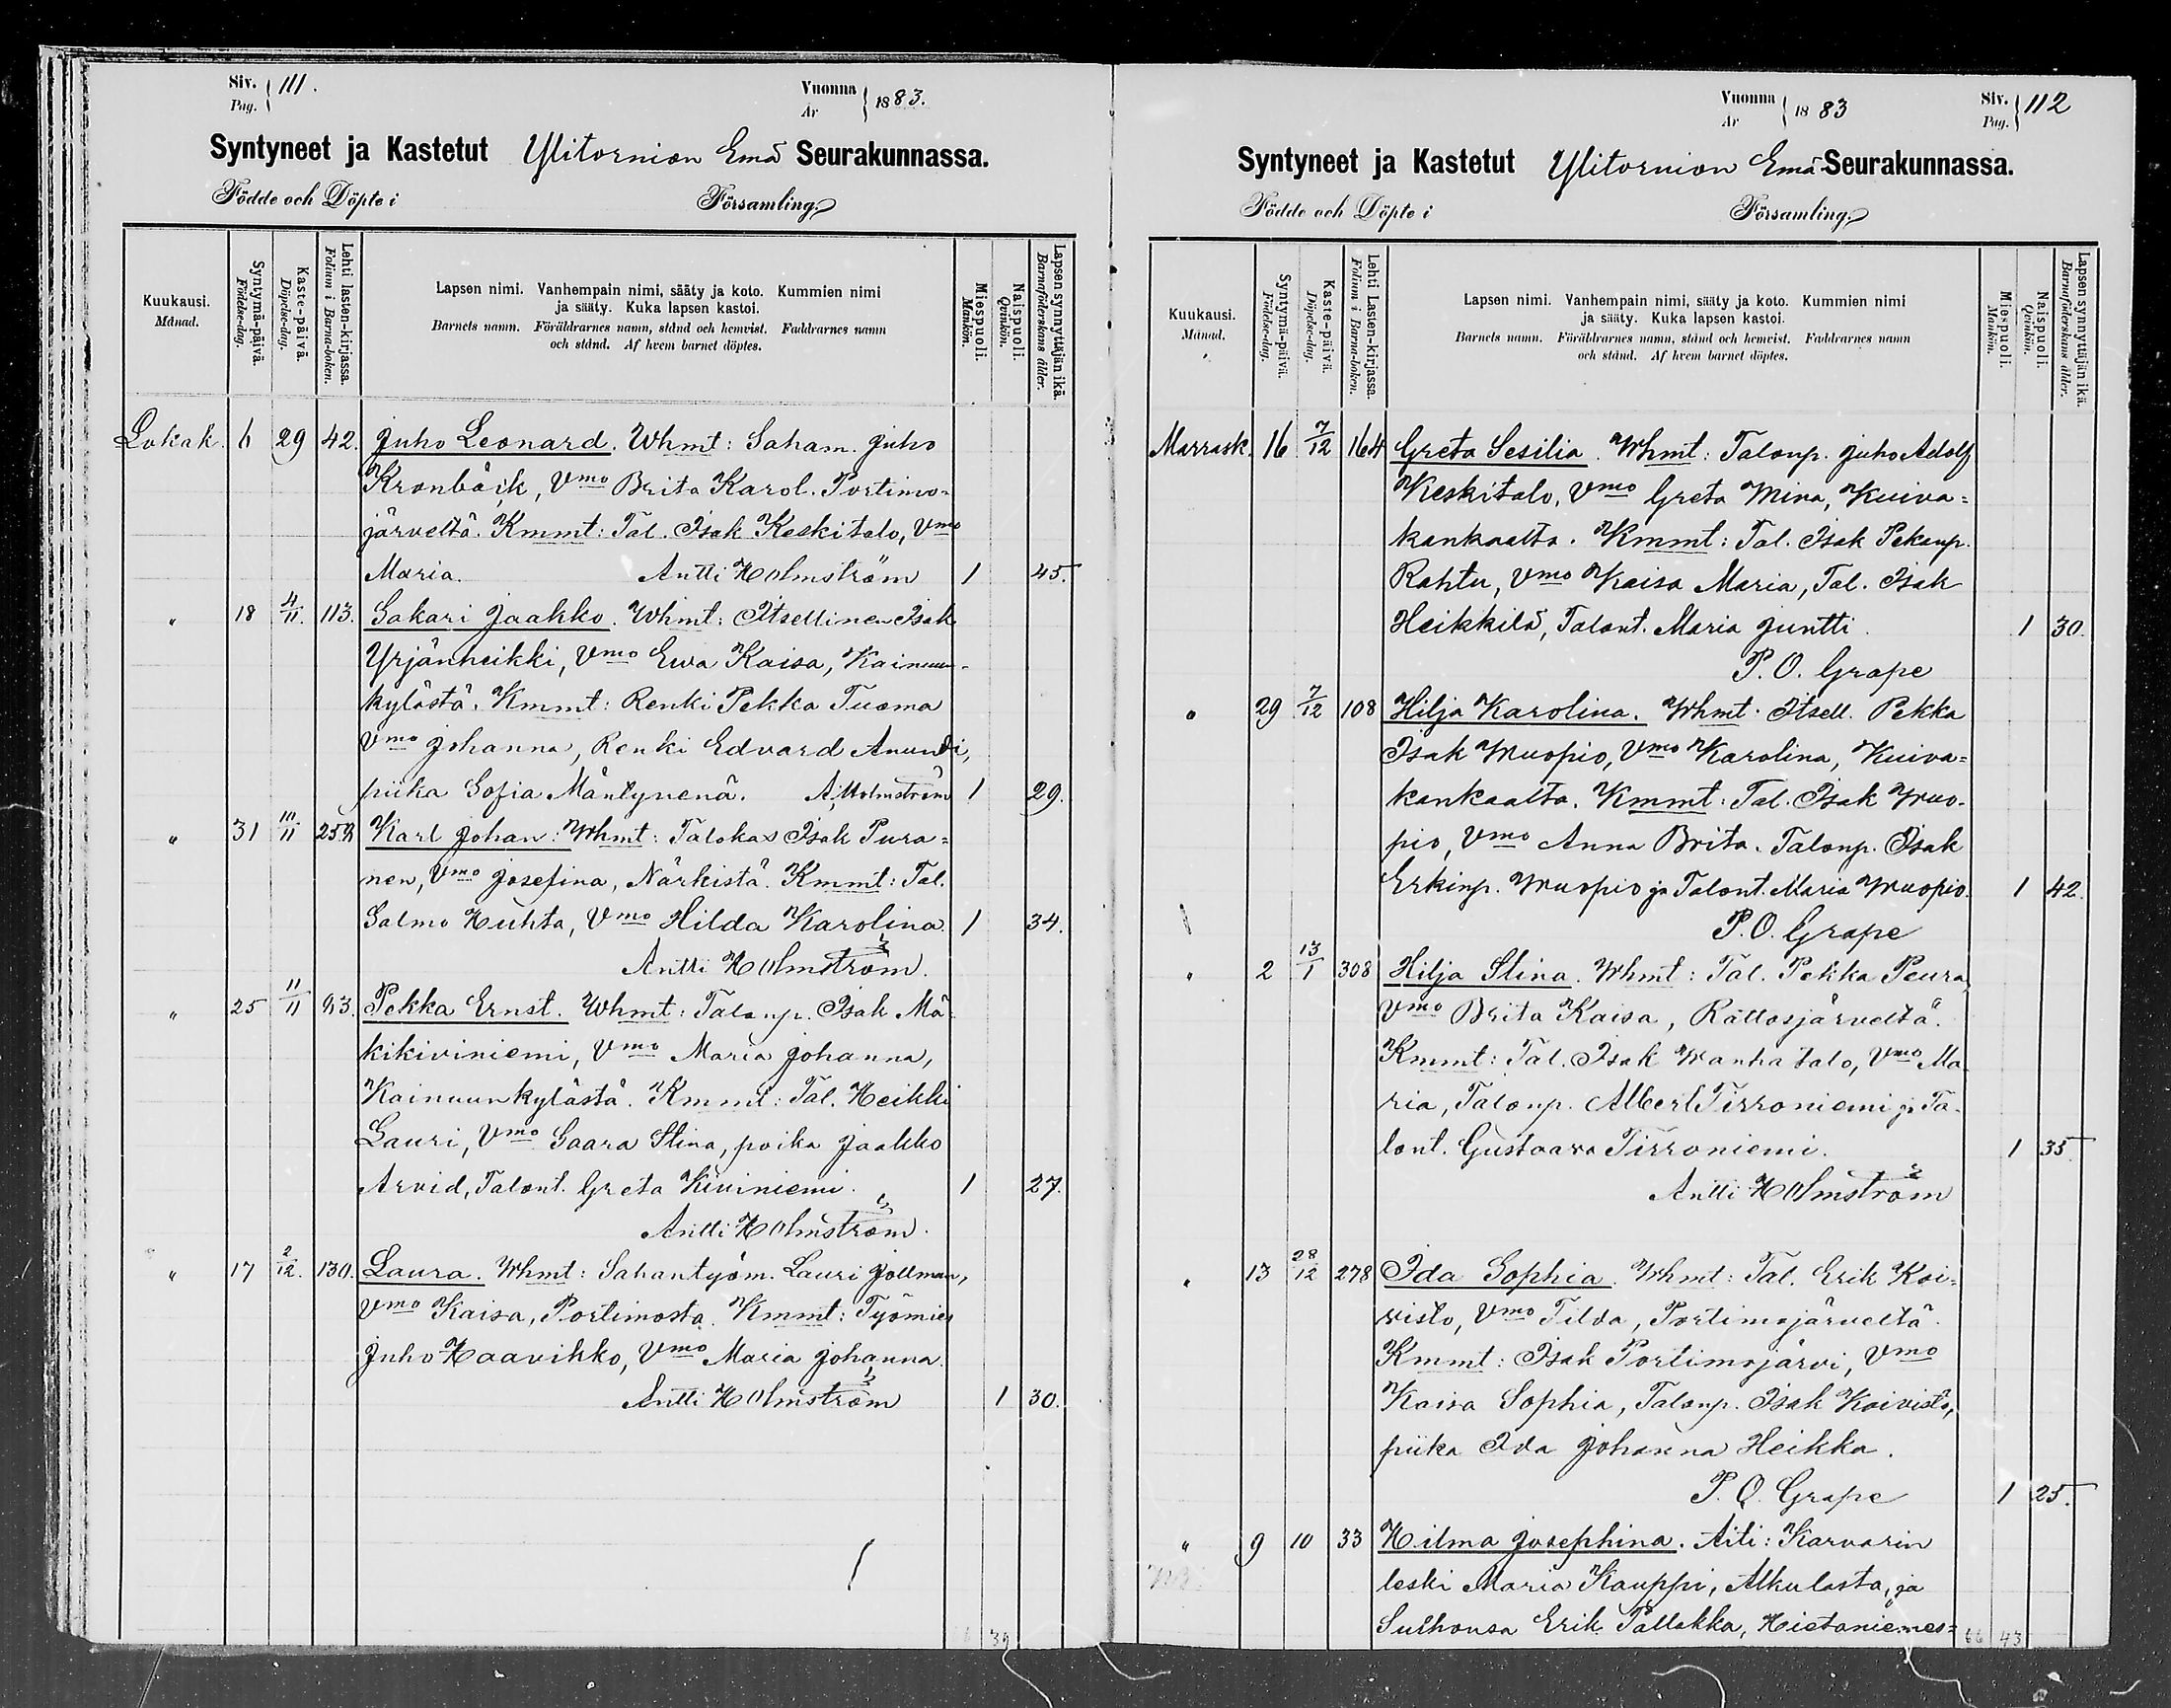 Siv. 111.
Pag.
Vuonna 1883.
År
Syntyneet ja Kastetut Ylitornion Emä Seurakunnassa.
Födde och Döpte i Församling.
Kuukausi.
Månad.
Syntymä-päivä.
Födelse-dag.
Kaste-päivä.
Döpelse-dag.
Lehti lasten-kirjassa.
Folium i Barna-boken.
Lapsen nimi. Vanhempain nimi, sääty ja koto. Kummien nimi
ja sääty. Kuka lapsen kastoi.
Barnets namn. Föräldrarnes namn, stånd och hemvist. Faddrarnes namn
och stånd. Af hvem barnet döptes.
Miespuoli.
Mankön.
Naispuoli.
Qvinkön.
Lapsen synnyttäjän ikä.
Barnaföderskans ålder.
Lokak. 6 29 42. Juho Leonard. Whmt: Saham. Juho
Kronbäck, Vmo Brita Karol. Portimo-
järveltä. Kmmt: Tal. Isak Keskitalo, Vmo
Maria. Antti Holmström 1 45.
" 18 4/11. 113. Sakari Jaakko. Whmt: Itsellinen Isak
Yrjänheikki, Vmo Ewa Kaisa, Kainuun-
kylästä. Kmmt: Renki Pekka Tuoma
Vmo Johanna, Renki Edvard Anundi,
piika Sofia Mäntynenä. A. Holmström 1 29.
" 31 10/11 Karl Johan: Whmt: Talokas Isak Pura=
nen, Vmo Josefina, Närkistä. Kmmt: Tal.
Salmo Huhta, Vmo Hilda Karolina. 1 34.
Antti Holmström.
" 25 11/11 93. Pekka Ernst. Whmt: Talonp. Isak Mä-
kikiviniemi, Vmo Maria Johanna,
Kainuunkylästä. Kmmt: Tal. Heikki
Lauri, Vmo Saara Stina, poika Jaakko
Arvid, Talont. Greta Kiviniemi. 1 27.
Antti Holmström.
" 17 2/12. 130. Laura. Whmt: Sahantyöm. Lauri Jollman,
Vmo Kaisa, Portimosta. Kmmt: Työmies
Juho Haavikko, Vmo Maria Johanna.
Antti Holmström 1 30.
39
Vuonna 1883
År
Siv. 112
Pag.
Syntyneet ja Kastetut Ylitornion Emä-Seurakunnassa.
Födde och Döpte i Församling.
Kuukausi.
Månad.
Syntymä-päivä.
Födelse-dag.
Kaste-päivä.
Döpelse-dag.
Lehti Lasten-kirjassa.
Folium i Barna-boken.
Lapsen nimi. Vanhempain nimi, sääty ja koto. Kummien nimi
ja sääty. Kuka lapsen kastoi.
Barnets namn. Föräldrarnes namn, stånd och hemvist. Faddrarnes namn
och stånd. Af hvem barnet döptes.
Miespuoli.
Mankön.
Naispuoli.
Qvinkön.
Lapsen synnyttäjän ikä.
Barnaföderskans ålder.
Marrask. 16 7/12 164 Greta Sesilia. Whmt: Talonp. Juho Adolf
Keskitalo, Vmo Greta Mina, Kuiva=
kankaalta. Kmmt: Tal. Isak Pekanp.
Rahtu, Vmo Kaisa Maria, Tal. Isak
Heikkilä, Talont. Maria Juntti. 1 30.
P. O. Grape
" 29 7/12 108 Hilja Karolina. Whmt. Itsell. Pekka
Isak Wuopio, Vmo Karolina, Kuiva=
kankaalta. Kmmt: Tal. Isak Wuo-
pio, Vmo Anna Brita. Talonp. Isak
Erkinp. Wuopio ja Talont. Maria Wuopio. 1 42.
P. O. Grape
" 2 13/1 308 Hilja Stina. Whmt: Tal. Pekka Peura,
Vmo Brita Kaisa, Rattosjärveltä.
Kmmt: Tal. Isak Wanha talo, Vmo Ma-
ria, Talonp. Albert Tirroniemi ja Ta-
lont. Gustaava Tirroniemi. 1 35
Antti Holmström
" 13 28/12 278 Ida Sophia. Whmt: Tal. Erik Koi=
visto, Vmo Tilda, Portimojärveltä.
Kmmt: Isak Portimojärvi, Vmo
Kaisa Sophia, Talonp. Isak Koivisto,
piika Ida Johanna Heikka.
P. O. Grape 1 25.
" 9 10 33 Hilma Josephina. Äiti: Karvarin
leski Maria Kauppi, Alkulasta, ja
Sulhonsa Erik Pallakka, Hietaniemes=
66 43